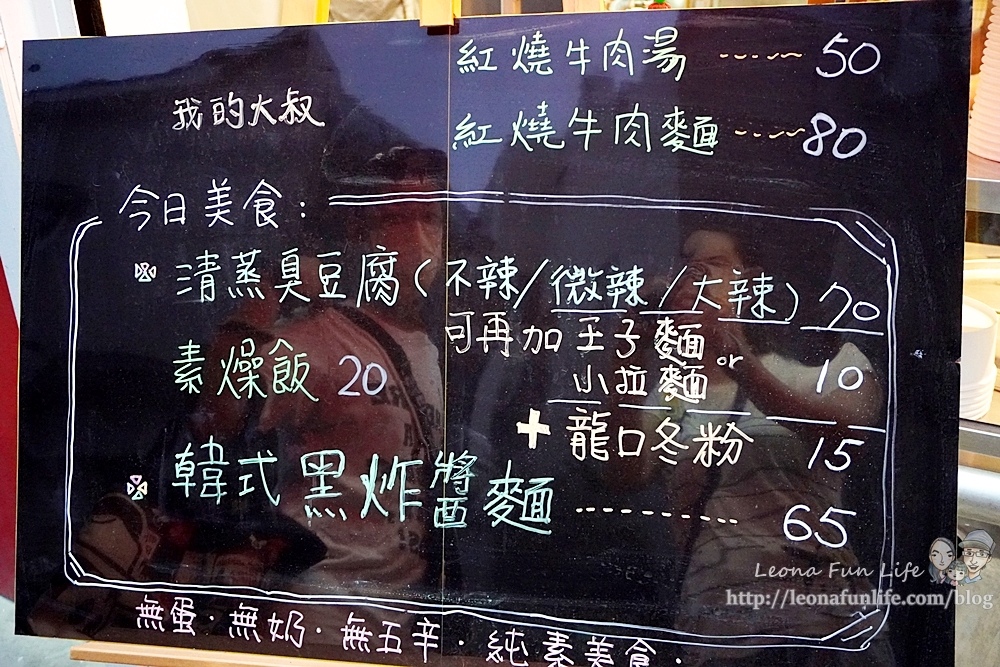 我的大叔
紅燒牛肉湯 ----- 50
紅燒牛肉麵 ----- 80
今日美食：
※ 清蒸臭豆腐（不辣/微辣/大辣）70
可再加 王子麵 or
小拉麵 10
素燥飯 20
+ 龍口冬粉 15
※ 韓式黑炸醬麵 ---------- 65
無蛋·無奶·無五辛·純素美食·
Leona Fun Life
http://leonafunlife.com/blog